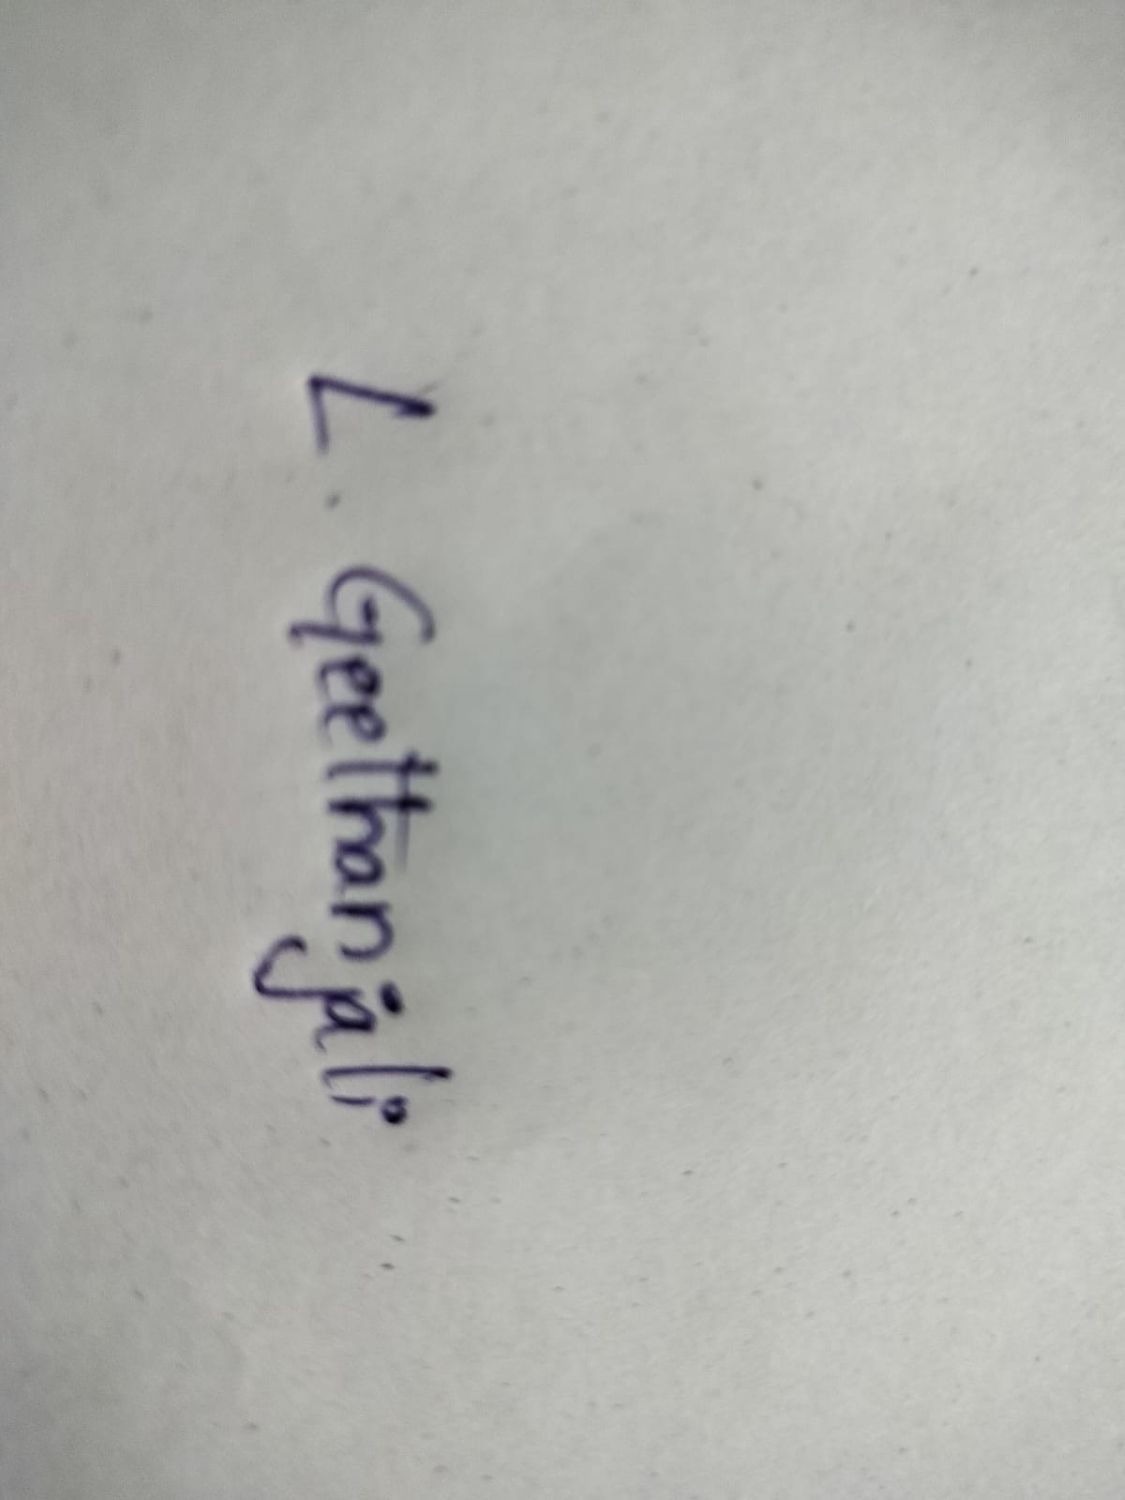 L. Geethanjali